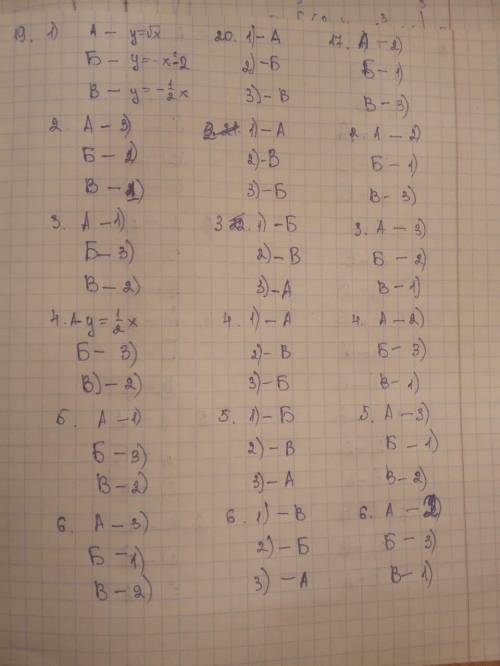 19. 1) А – y=√x
Б – y=-x²-2
В – y=-½x
2. А – 3)
Б – 2)
В – 1)
3. А – 1)
Б – 3)
В – 2)
4. А – y=½x
Б – 3)
В) – 2)
5. А – 1)
Б – 3)
В – 2)
6. А – 3)
Б – 1)
В – 2)
20. 1) – А
2) – Б
3) – В
2. 1) – А
2) – В
3) – Б
3. 1) – Б
2) – В
3) – А
4. 1) – А
2) – В
3) – Б
5. 1) – Б
2) – В
3) – А
6. 1) – В
2) – Б
3) – А
17. А – 2)
Б – 1)
В – 3)
2. А – 2)
Б – 1)
В – 3)
3. А – 3)
Б – 2)
В – 1)
4. А – 2)
Б – 3)
В – 1)
5. А – 3)
Б – 1)
В – 2)
6. А – 2)
Б – 3)
В – 1)